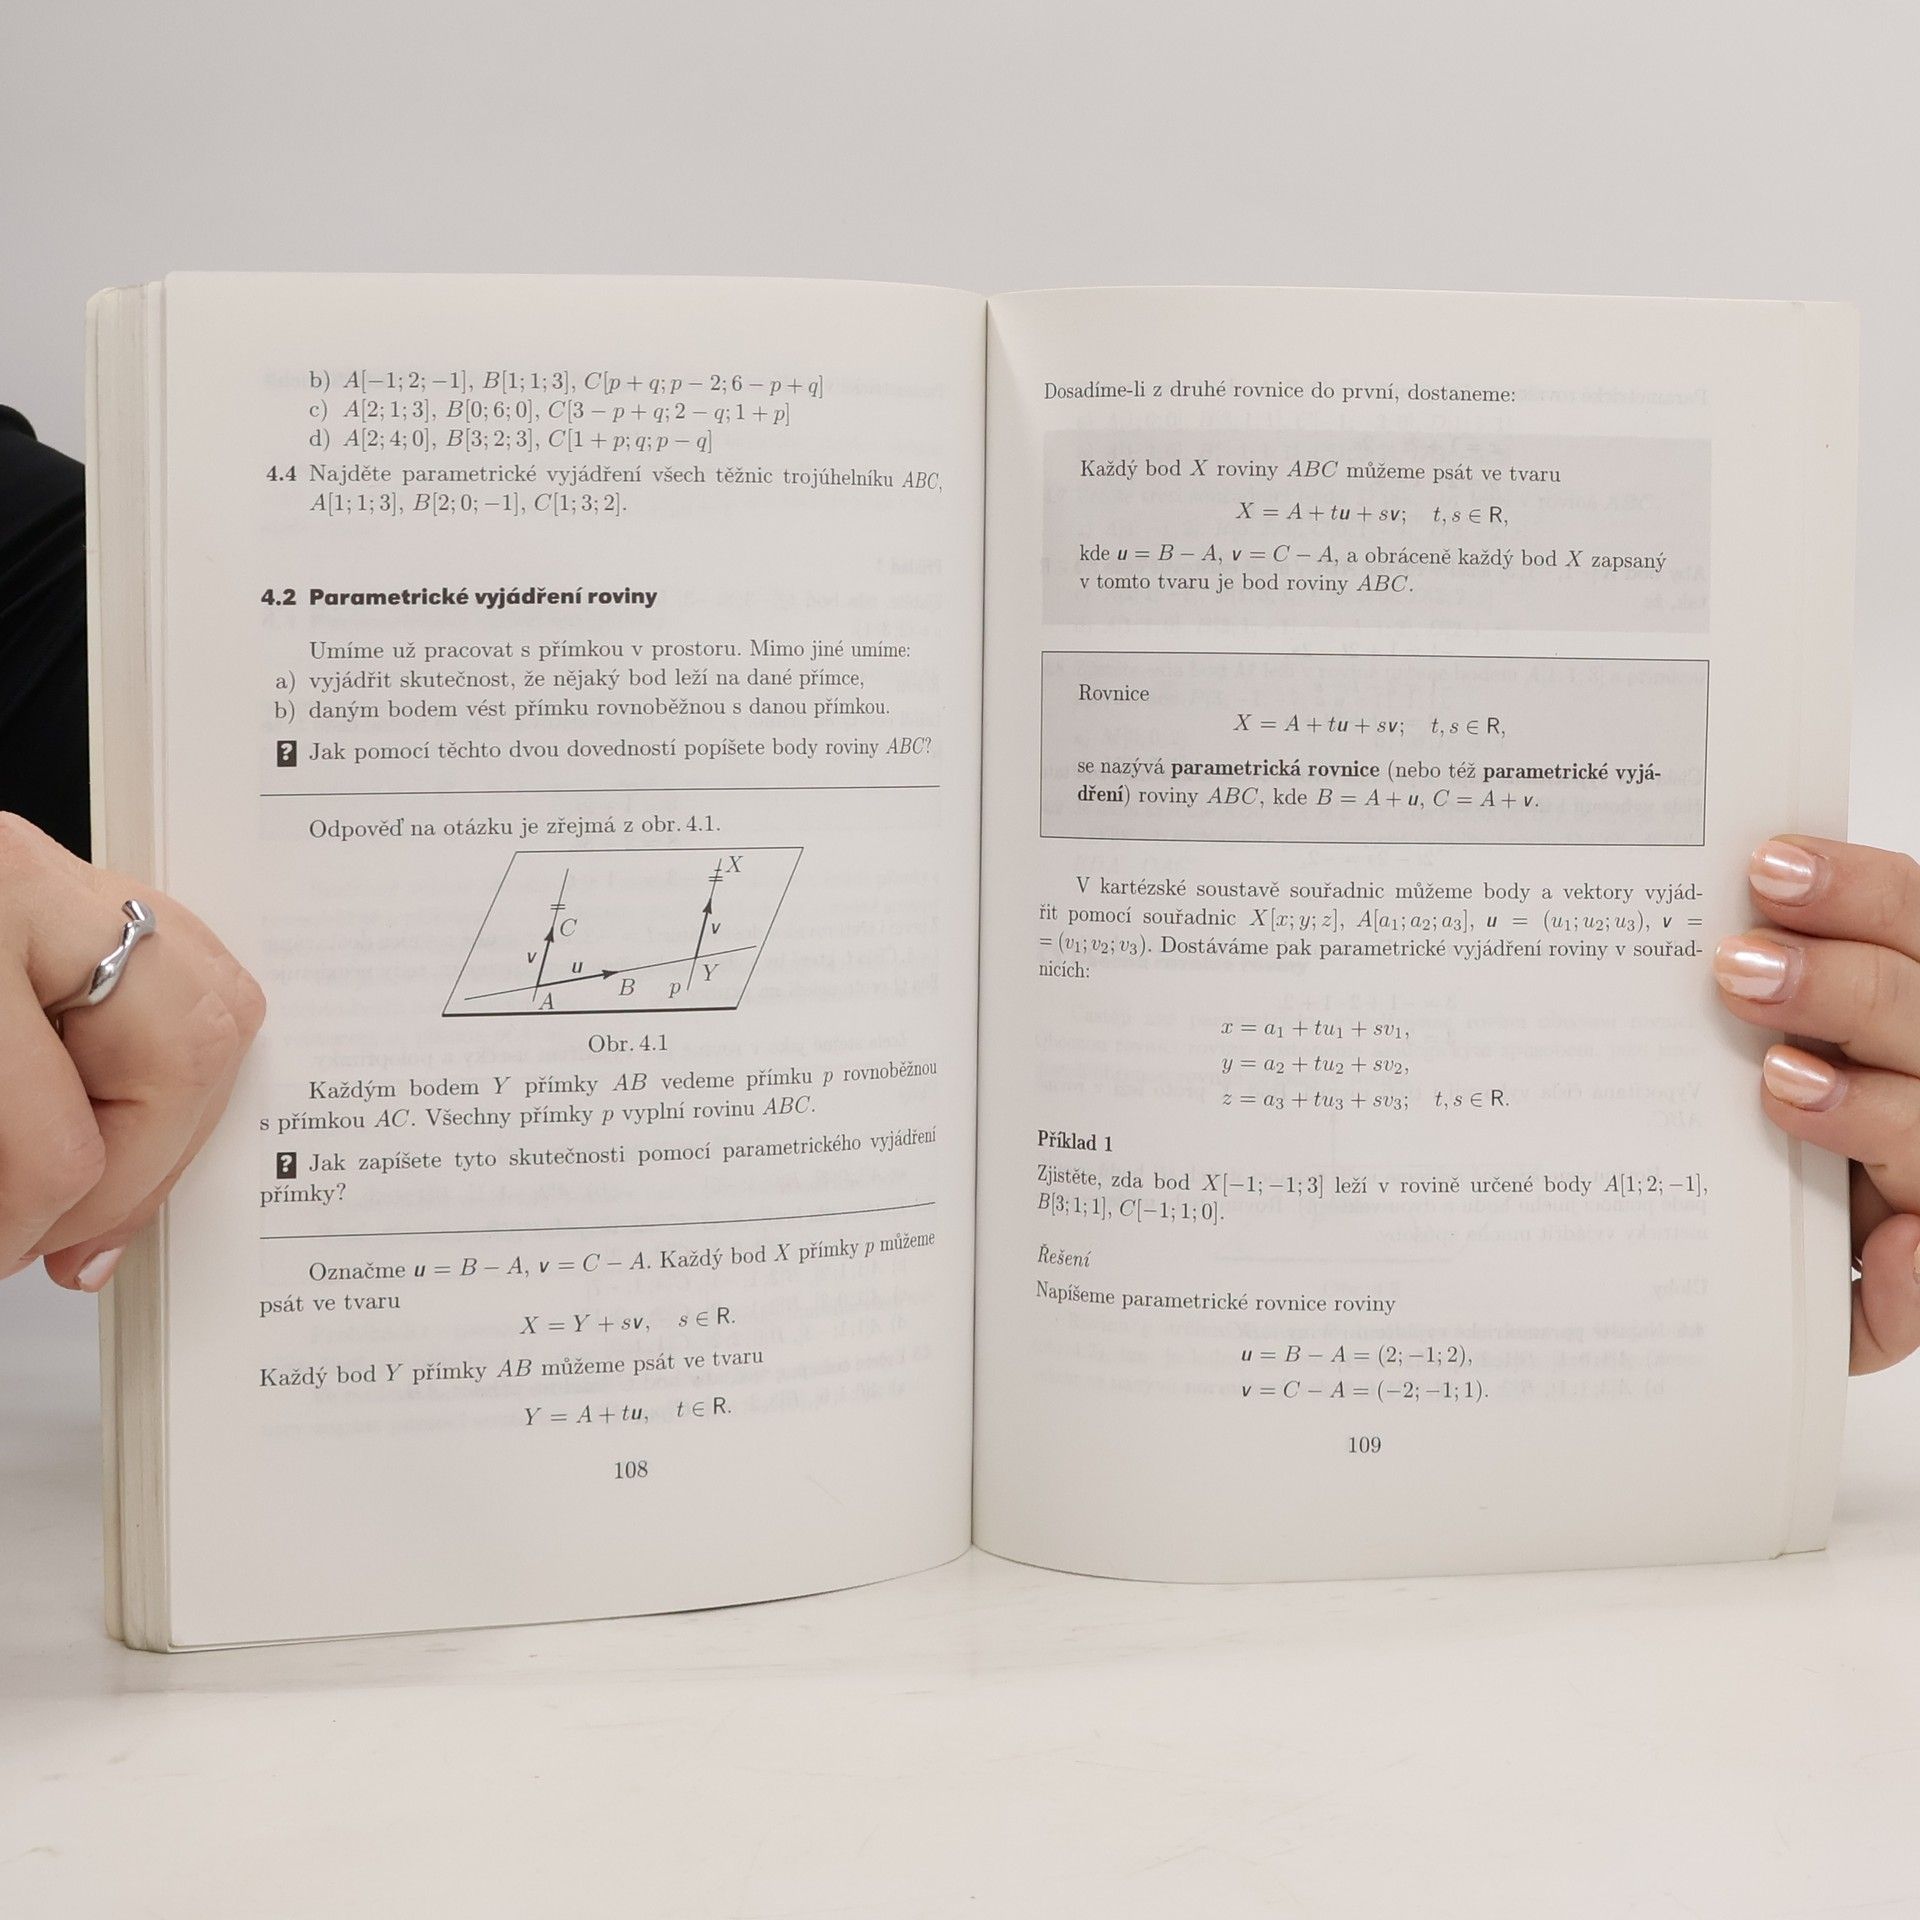 b) A[−1; 2; −1], B[1; 1; 3], C[p + q; p − 2; 6 − p + q]
c) A[2; 1; 3], B[0; 6; 0], C[3 − p + q; 2 − q; 1 + p]
d) A[2; 4; 0], B[3; 2; 3], C[1 + p; q; p − q]
4.4 Najděte parametrické vyjádření všech těžnic trojúhelníku ABC,
A[1; 1; 3], B[2; 0; −1], C[1; 3; 2].
4.2 Parametrické vyjádření roviny
Umíme už pracovat s přímkou v prostoru. Mimo jiné umíme:
a) vyjádřit skutečnost, že nějaký bod leží na dané přímce,
b) daným bodem vést přímku rovnoběžnou s danou přímkou.
? Jak pomocí těchto dvou dovedností popíšete body roviny ABC?
Odpověď na otázku je zřejmá z obr. 4.1.
X
C
v
v
u
Y
B
p
A
Obr. 4.1
Každým bodem Y přímky AB vedeme přímku p rovnoběžnou
s přímkou AC. Všechny přímky p vyplní rovinu ABC.
? Jak zapíšete tyto skutečnosti pomocí parametrického vyjádření
přímky?
Označme u = B − A, v = C − A. Každý bod X přímky p můžeme
psát ve tvaru
X = Y + sv, s ∈ R.
Každý bod Y přímky AB můžeme psát ve tvaru
Y = A + tu, t ∈ R.
108
Dosadíme-li z druhé rovnice do první, dostaneme:
Každý bod X roviny ABC můžeme psát ve tvaru
X = A + tu + sv; t, s ∈ R,
kde u = B − A, v = C − A, a obráceně každý bod X zapsaný
v tomto tvaru je bod roviny ABC.
Rovnice
X = A + tu + sv; t, s ∈ R,
se nazývá parametrická rovnice (nebo též parametrické vyjá-
dření) roviny ABC, kde B = A + u, C = A + v.
V kartézské soustavě souřadnic můžeme body a vektory vyjád-
řit pomocí souřadnic X[x; y; z], A[a₁; a₂; a₃], u = (u₁; u₂; u₃), v =
= (v₁; v₂; v₃). Dostáváme pak parametrické vyjádření roviny v souřad-
nicích:
x = a₁ + tu₁ + sv₁,
y = a₂ + tu₂ + sv₂,
z = a₃ + tu₃ + sv₃; t, s ∈ R.
Příklad 1
Zjistěte, zda bod X[−1; −1; 3] leží v rovině určené body A[1; 2; −1],
B[3; 1; 1], C[−1; 1; 0].
Řešení
Napíšeme parametrické rovnice roviny
u = B − A = (2; −1; 2),
v = C − A = (−2; −1; 1).
109